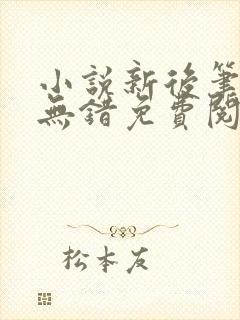 小説新後筆
無錯免費閱
松本友